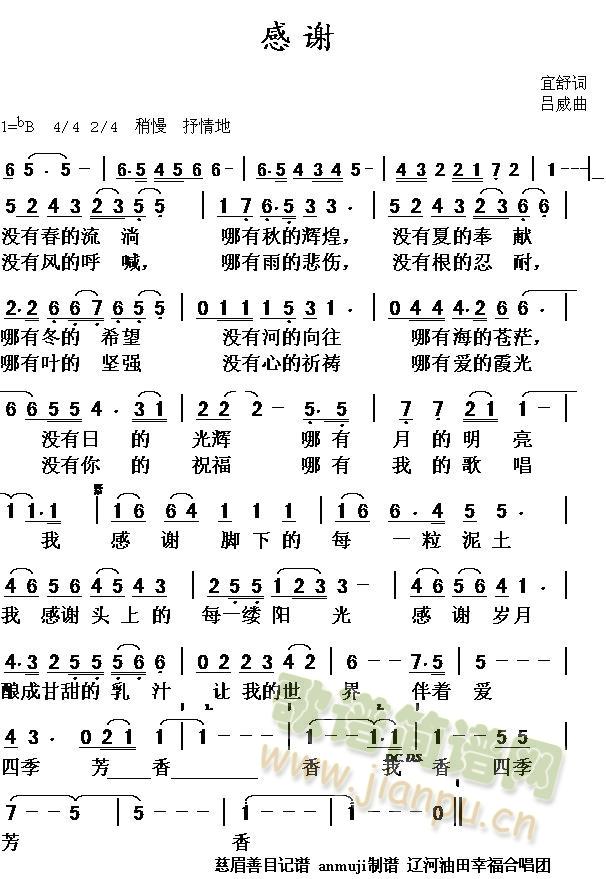 感谢
宜舒词
吕威曲
1=bB 4/4 2/4 稍慢 抒情地
6 5 · 5 - | 6·5 4 5 6 6 - | 6·5 4 3 4 5 - | 4·2 2 2 1 7 2 | 1 - - -
5 2 4 3 2 3 5 5 | 1 7 6·5 3 3 · | 5 2 4 3 2 3 6 6 |
没有春的流 淌 哪有秋的辉煌, 没有夏的奉 献
没有风的呼 喊, 哪有雨的悲伤, 没有根的忍 耐,
2·2 6 6 7 6 5 5 | 0 1 1 1 5 3 1 · | 0 4 4 4·2 6 6 · |
哪有冬的 希望 没有河的向往 哪有海的苍茫,
哪有叶的 坚强 没有心的祈祷 哪有爱的霞光
6 6 5 5 4 · 3 1 | 2 2 2 - 5·5 | 7 7 2 1 1 - |
没有日 的 光辉 哪 有 月 的 明 亮
没有你 的 祝福 哪 有 我 的 歌 唱
1 1·1 | 1 6 6 4 1 1 1 | 1 6 6 · 4 5 5 · |
我 感 谢 脚 下 的 每 一 粒 泥 土
4 6 5 6 4 5 4 3 | 2 5 5 1 2 3 3 · | 4 6 5 6 4 1 · |
我 感谢 头 上 的 每一缕 阳 光 感 谢 岁月
4·3 2 5 5 5 6 6 | 0 2 2 3 4 2 | 6 - - 7·5 | 5 - - - |
酿成甘甜的 乳 汁 让 我的世 界 伴着 爱
4 3 · 0 2 1 1 | 1 - - - | 1 - - 1·1 | 1 - - 5 5
四季 芳__香________ 香 我 香 四季
DC DS
7 - - 5 | 5 - - - | 1 - - - | 1 - - 0
芳 香
歌谱简谱网
www.jianpu.cn
慈眉善目记谱 anmuji制谱 辽河油田幸福合唱团